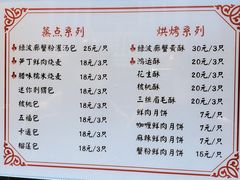 蒸点系列
绿波廊蟹粉灌汤包 25元/只
笋丁鲜肉烧麦 18元/3只
腊味糯米烧麦 18元/3只
迷你刺猬包 18元/3只
核桃包 18元/3只
五福包 18元/3只
卡通包 18元/3只
榴莲包 18元/3只
烘烤系列
绿波廊蟹黄酥 30元/3只
鸿运酥 20元/3只
花生酥 20元/3只
核桃酥 20元/3只
三丝眉毛酥 20元/3只
鲜肉月饼 7元/只
咖喱鲜肉月饼 7元/只
麻辣鲜肉月饼 7元/只
蟹粉鲜肉月饼 15元/只